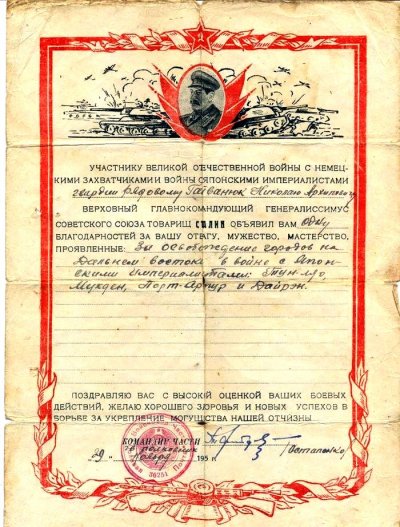 УЧАСТНИКУ ВЕЛИКОЙ ОТЕЧЕСТВЕННОЙ ВОЙНЫ С НЕМЕЦ-
КИМИ ЗАХВАТЧИКАМИ И ВОЙНЫ С ЯПОНСКИМИ ИМПЕРИАЛИСТАМИ
гвардии рядовому Гайванюк Николаю Архиповичу
ВЕРХОВНЫЙ ГЛАВНОКОМАНДУЮЩИЙ ГЕНЕРАЛИССИМУС
СОВЕТСКОГО СОЮЗА ТОВАРИЩ СТАЛИН ОБЪЯВИЛ ВАМ одну
БЛАГОДАРНОСТЕЙ ЗА ВАШУ ОТВАГУ, МУЖЕСТВО, МАСТЕРСТВО,
ПРОЯВЛЕННЫЕ: За освобождение городов на
Дальнем востоке в войне с Япон-
скими империалистами: Тун-ляо
Мукден, Порт-Артур и Дайрэн.
ПОЗДРАВЛЯЮ ВАС С ВЫСОКОЙ ОЦЕНКОЙ ВАШИХ БОЕВЫХ
ДЕЙСТВИЙ, ЖЕЛАЮ ХОРОШЕГО ЗДОРОВЬЯ И НОВЫХ УСПЕХОВ В
БОРЬБЕ ЗА УКРЕПЛЕНИЕ МОГУЩЕСТВА НАШЕЙ ОТЧИЗНЫ.
КОМАНДИР ЧАСТИ
гв. полковник
(Остапенко)
195 г.
36251